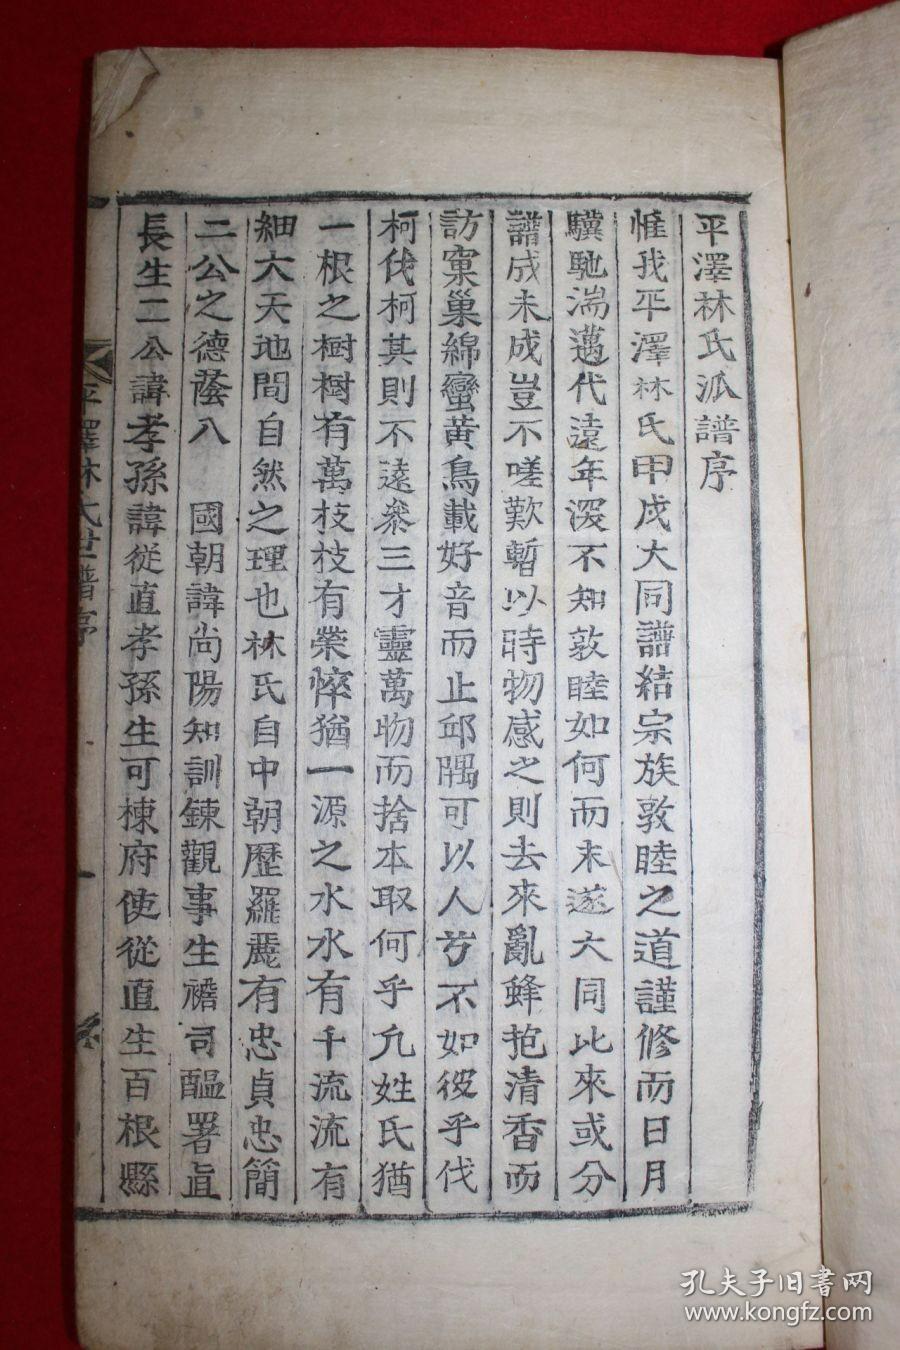 平澤林氏派譜序
惟我平澤林氏甲戌大同譜結宗族敦睦之道謹修而日月
驥馳湍邁代遠年深不知敦睦如何而未遂大同比來或分
譜成未成豈不嗟歎暫以時物感之則去來亂蜂抱清香而
訪窠巢綿蠻黃鳥載好音而止邱隅可以人兮不如彼乎伐
柯伐柯其則不遠叅三才靈萬物而捨本取何乎凡姓氏猶
一根之樹樹有萬枝枝有榮悴猶一源之水水有千流流有
細大天地間自然之理也林氏自中朝歷羅麗有忠貞忠簡
二公之德蔭八 國朝諱尚陽知訓鍊觀事生襘司醞署直
長生二公諱孝孫諱從直孝孫生可棟府使從直生百根縣
平澤林氏世譜序
一
孔夫子旧书网
www.kongfz.com